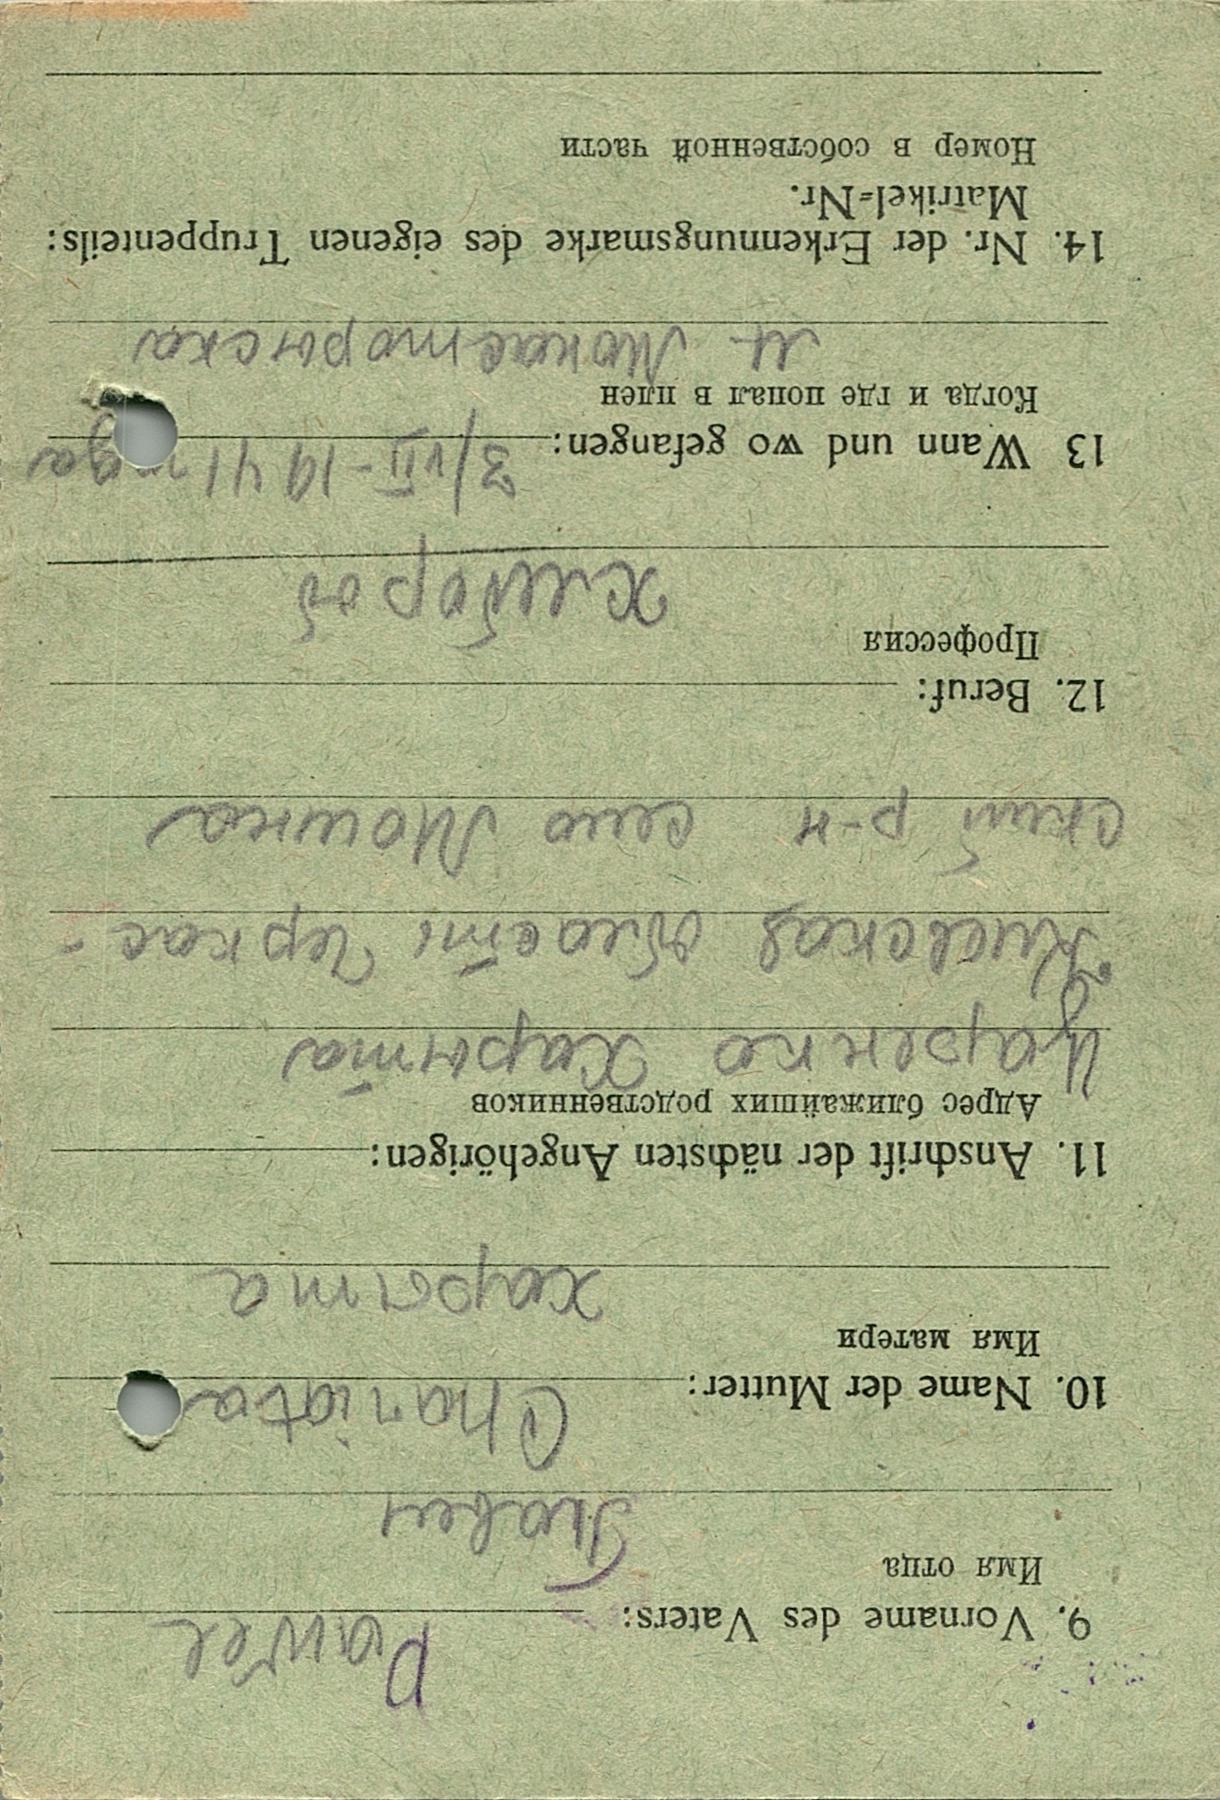 Pawel
9. Vorname des Vaters:
Имя отца
Павел
Chariota
10. Name der Mutter:
Имя матери
харыта
11. Anschrift der nächsten Angehörigen:
Адрес ближайших родственников
Царенко Харыта
Киевская область Черкас-
ский р-н село Мошна
12. Beruf:
Профессия
хлебороб
13 Wann und wo gefangen: 3/VII-1941 года
Когда и где попал в плен
м Монасторыска
14. Nr. der Erkennungsmarke des eigenen Truppenteils:
Matrikel-Nr.
Номер в собственной части